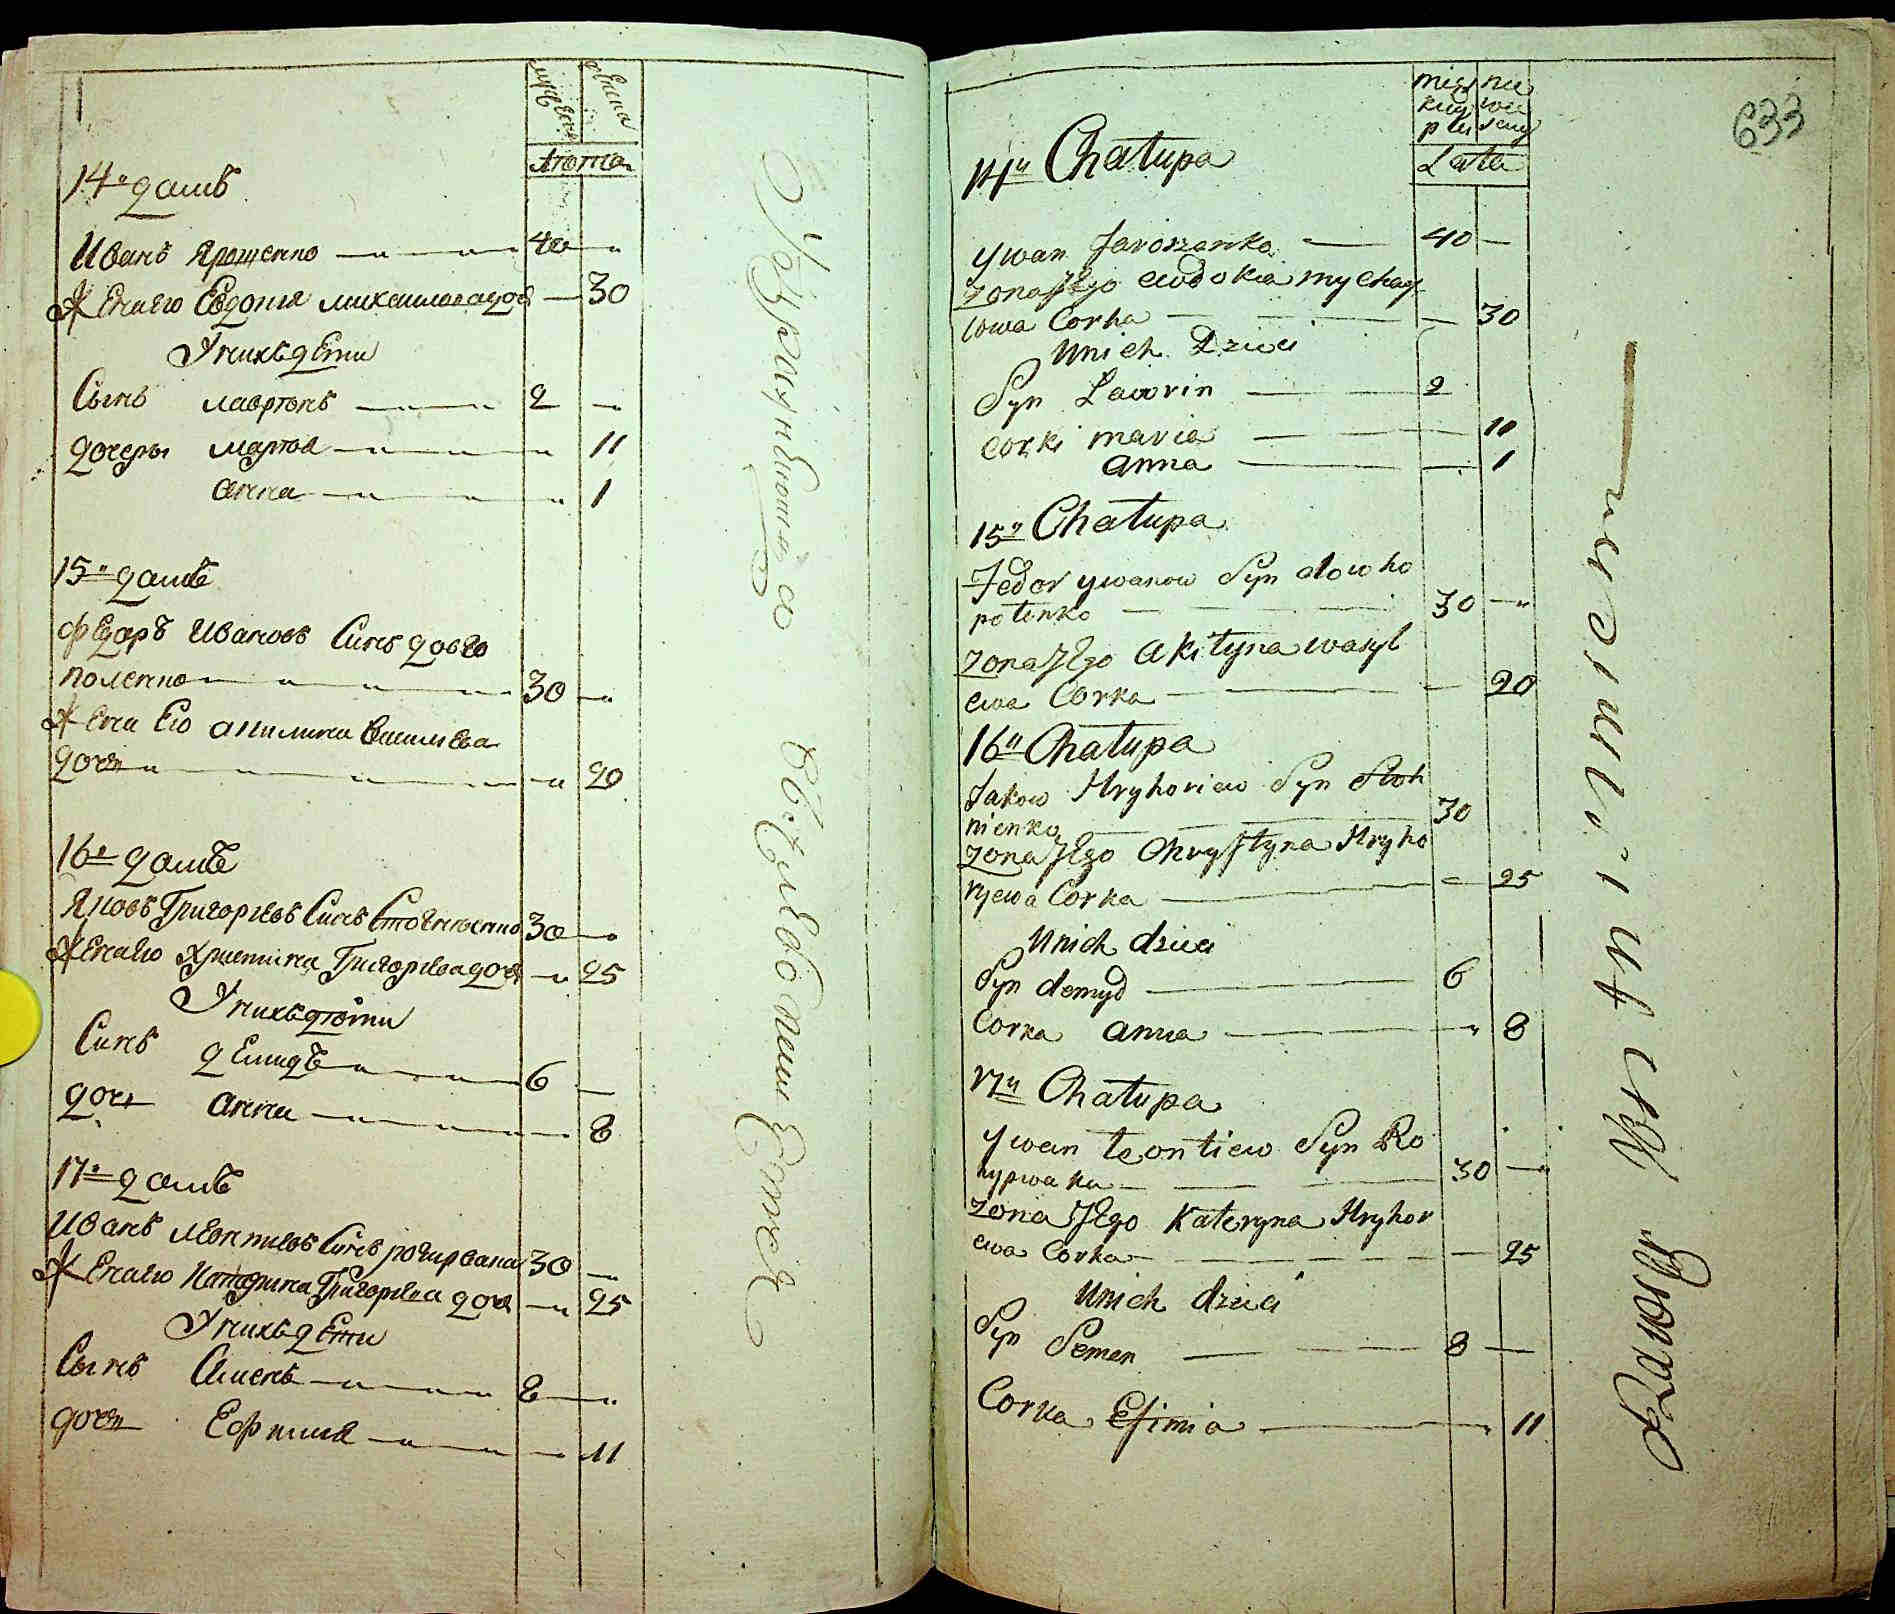 мужеска
женска
Лѣта
14ᵃ домъ
Иванъ Ярошенко 40 "
Жена Его Евдокия михаиловадочь 30
У нихъ дети
Сынъ лаврѣнъ 2 "
дочеры мария 11
анна 1
15" домъ
Федоръ Ивановъ Синъ довго
поленко 30 "
Жена Его акилина василиева
дочь " 20
16" домъ
Яковъ Григориевъ Синъ Стогниенко 30 "
Жена Его Христина Григориева дочь " 25
У нихъ дѣти
Синъ демидъ 6
дочь анна 8
17" домъ
Иванъ леонтиевъ Синъ рогирвана 30
Жена Его Катерина Григориева дочь " 25
У нихъ дети
Сынъ Сименъ 8 "
дочь Ефимия " 11
633
męz kiey płci
nie wie sciey
Lata
14ᵃ Chałupa
Ywan Jaroszenko 40
zona Jego ewdokia mychay
lowa Corka 30
Unich Dzieci
Syn Lawrin 2
corki maria 11
anna 1
15" Chałupa
Fedor ywanow Syn dowho
polenko 30 "
zona Jego akilyna wasyl
ewa Corka 20
16" Chałupa
Jakow Hryhoriew Syn Stoh
nienko 30
zona Jego Chrystyna Hryho
ryewa Corka 25
Unich dzieci
Syn demyd 6
Corka anna " 8
17" Chałupa
Ywan Leontiew Syn Ro
hyrwaka 30 "
zona Jego Kateryna Hryhor
ewa Corka 25
Unich dzieci
Syn Semen 8
Corka Efimia 11